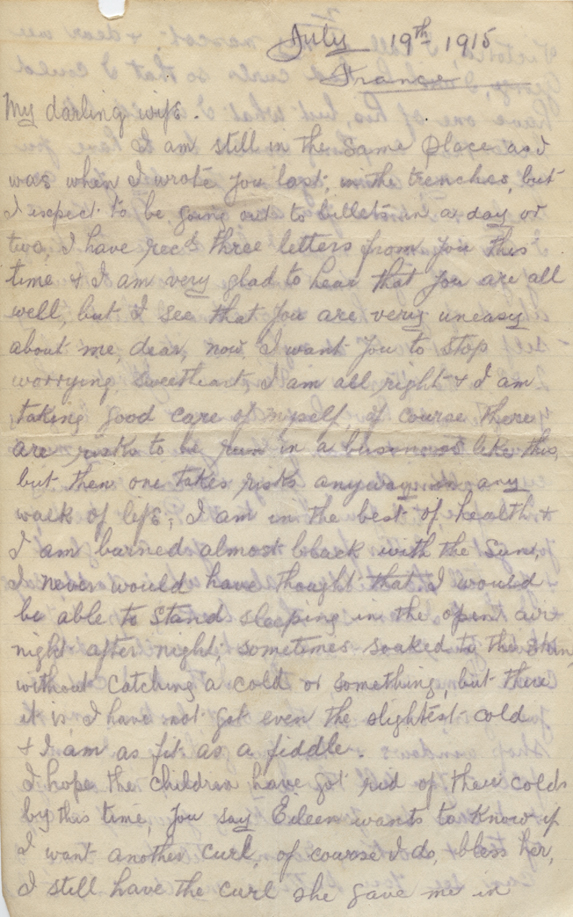 July 19th 1915
France
My darling wife.
I am still in the same place as I
was when I wrote you last, in the trenches, but
I expect to be going out to billets in a day or
two, I have recd three letters from you this
time & I am very glad to hear that you are all
well, but I see that you are very uneasy
about me, dear, now I want you to stop
worrying, sweetheart, I am all right & I am
taking good care of myself, of course there
are risks to be run in a business like this,
but then one takes risks anyway in any
walk of life, I am in the best of health &
I am burned almost black with the sun,
I never would have thought that I would
be able to stand sleeping in the open air
night after night, sometimes soaked to the skin,
without catching a cold or something, but there
it is, I have not got even the slightest cold
& I am as fit as a fiddle.
I hope the children have got rid of their colds
by this time, you say Eileen wants to know if
I want another curl, of course I do, bless her,
I still have the curl she gave me in